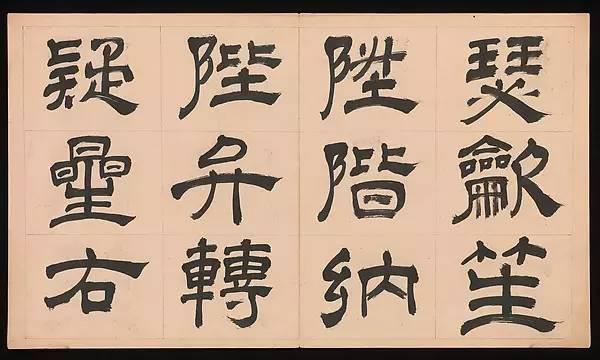 瑟龡笙
陞階納
陛弁轉
疑曐右